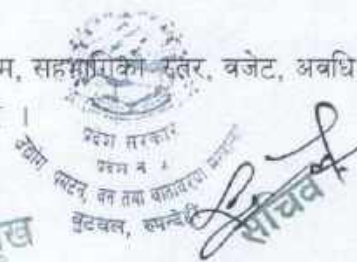 म, सहभागिको स्तर, बजेट, अबधि
।
प्रदेश सरकार
प्रदेश नं ५
उद्योग, पर्यटन, वन तथा वातावरण मन्त्रालय
बुटवल, रुपन्देही
सचिव
ख